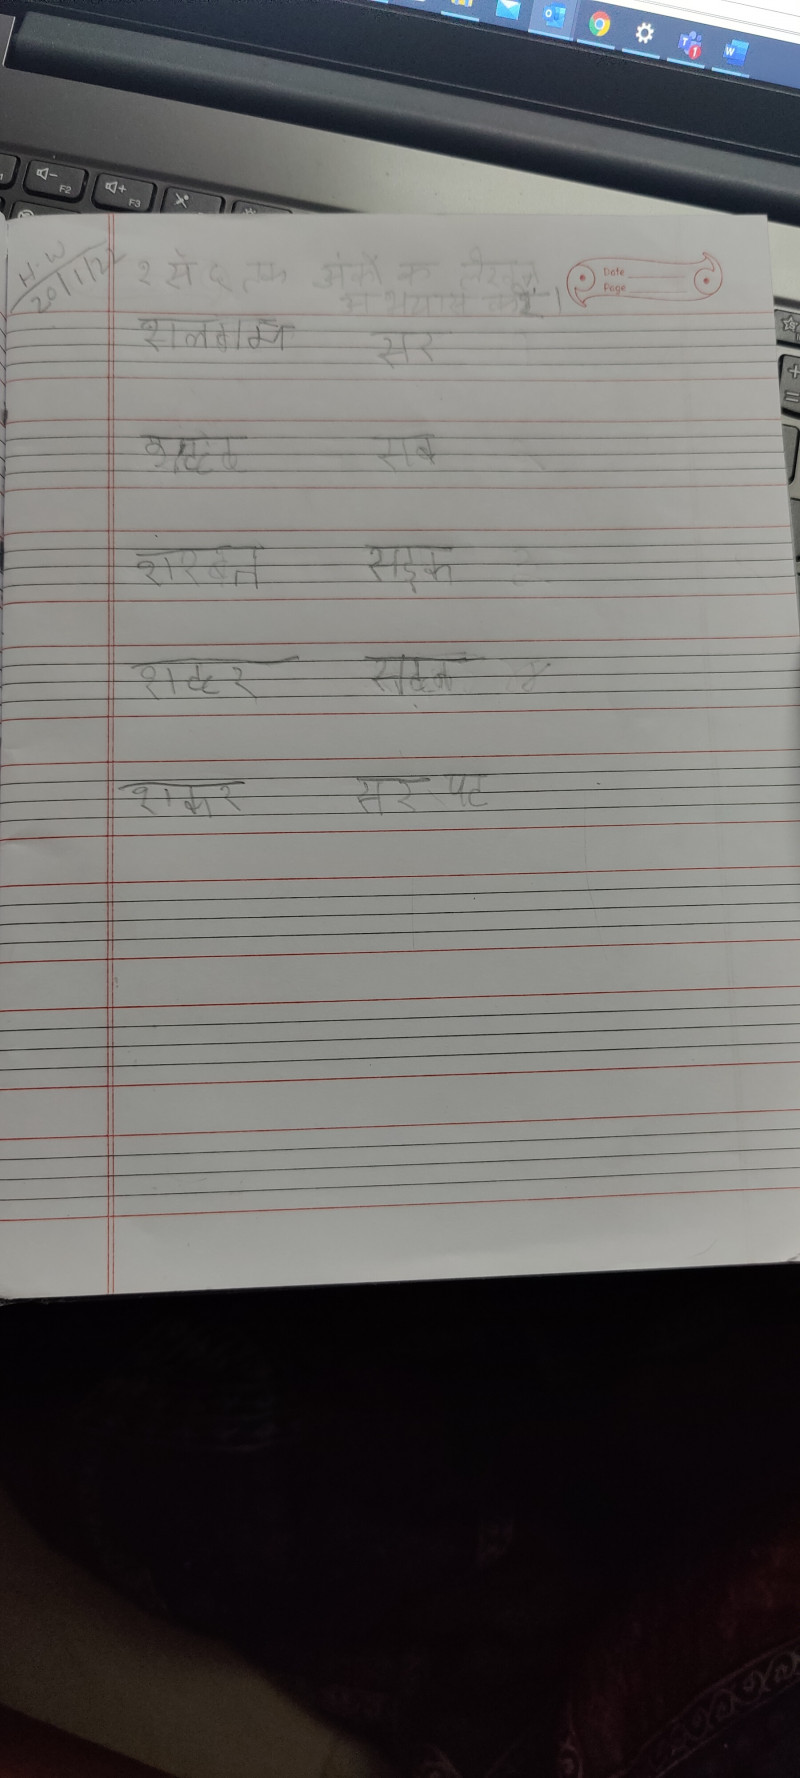 H.W
20/1/22
१ से ६ तक अंकों क लेखन
अभयास करें।
Date
Page
शलगम सर
सब
शरबत सड़क
शहर
शकर सरपट
F2
F3